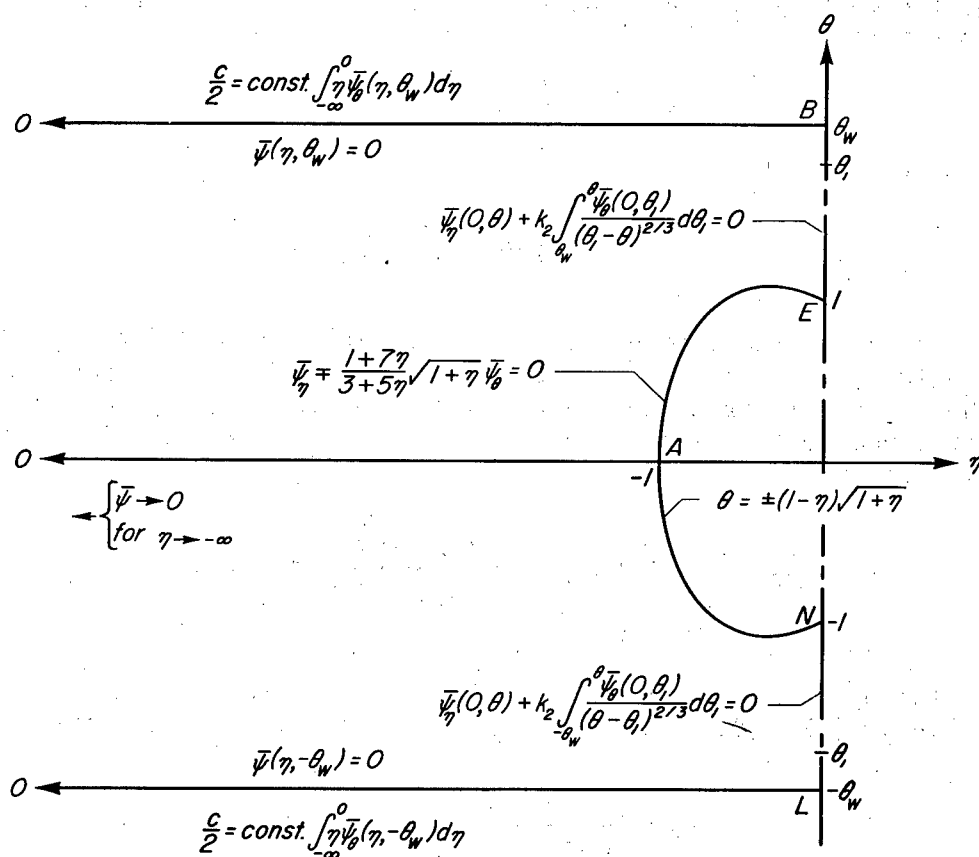 θ
c/2 = const. ∫_{-∞}^{0} η ψ̅_θ(η, θ_w) dη
O
B
θ_w
ψ̅(η, θ_w) = 0
θ_1
ψ̅_η(0, θ) + k_2 ∫_{θ_w}^{θ} ψ̅_θ(0, θ_1)/(θ_1 - θ)^{2/3} dθ_1 = 0
E
1
ψ̅_η ∓ (1 + 7η)/(3 + 5η) √(1 + η) ψ̅_θ = 0
O
A
η
-1
ψ̅ → 0
for η → -∞
θ = ±(1 - η)√(1 + η)
N
-1
ψ̅_η(0, θ) + k_2 ∫_{-θ_w}^{θ} ψ̅_θ(0, θ_1)/(θ - θ_1)^{2/3} dθ_1 = 0
θ_1
ψ̅(η, -θ_w) = 0
O
L
-θ_w
c/2 = const. ∫_{-∞}^{0} η ψ̅_θ(η, -θ_w) dη